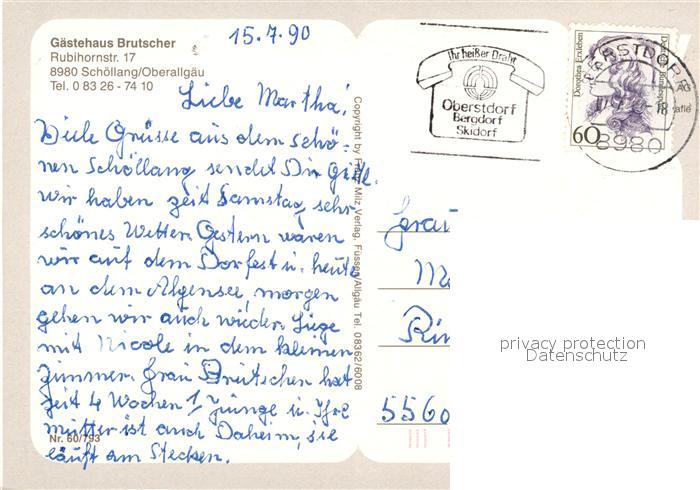 Gästehaus Brutscher
Rubihornstr. 17
8980 Schöllang/Oberallgäu
Tel. 0 83 26 - 74 10
15.7.90
Liebe Martha!
Viele Grüsse aus dem schö-
nen Schöllang sendet Dir
wir haben zeit Samstag sehr
schönes Wetter. Gestern waren
wir auf dem Dorfest u. heute
an dem Algensee, morgen
gehen wir auch wieder. Liege
mit Nicole in dem kleinen
Zimmer. Frau Brutscher hat
zeit 4 Wochen 1 Junge u. Ihre
Mutter ist auch Daheim, sie
läuft am Stecken.
Nr. 60/793
Copyright by Franz Milz Verlag, Füssen/Allgäu Tel. 08362/6008
Ihr heißer Draht
Oberstdorf
Bergdorf
Skidorf
OBERSTDORF
8980
Dorothea Erxleben
Deutsche Bundespost
60
Frau
M
Rin
5560
privacy protection
Datenschutz